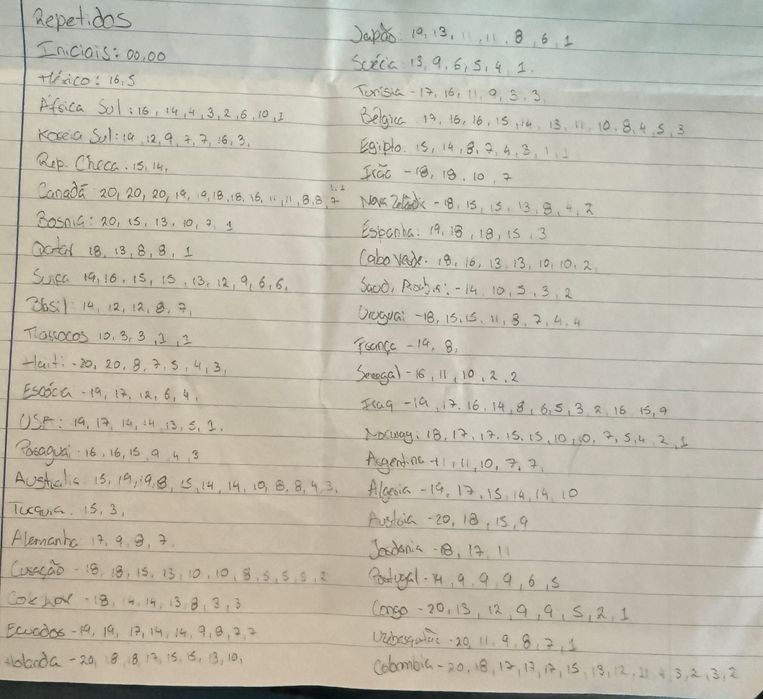 Repetidos
Iniciais: 00,00
México: 16,5
Africa Sul: 16, 14, 4, 3, 2, 6, 10, 1
Koreia Sul: 19, 12, 9, 7, 7, 16, 3,
Rep. Checa: 15, 14,
Canadá 20, 20, 20, 19, 19, 18, 18, 16, 11, 11, 8, 8, 7 1,1
Bosnia: 20, 15, 13, 10, 7, 1
Qatar 18, 13, 8, 8, 1
Suiça 19, 16, 15, 15, 13, 12, 9, 6, 6,
Brasil: 14, 12, 12, 8, 7,
Marrocos 10, 3, 3, 1, 1
Haiti - 20, 20, 8, 7, 5, 4, 3,
Escócia - 19, 17, 12, 6, 4,
USA: 19, 17, 14, 14, 13, 5, 1.
Paraguai: 16, 16, 15, 9, 4, 3
Australia 15, 19, 19, 8, 15, 14, 14, 10, 8, 8, 4, 3,
Turquia: 15, 3,
Alemanha 17, 9, 8, 7
Curaçao - 18, 18, 15, 13, 10, 10, 8, 5, 5, 5, 2
- 18, 14, 14, 13, 8, 3, 3
Ecuador - 19, 19, 17, 14, 14, 9, 8, 7, 7
Holanda - 20, 18, 18, 17, 15, 15, 13, 10,
Japão: 19, 13, 11, 11, 8, 6, 1
Suécia: 13, 9, 6, 5, 4, 1.
Tunisia - 17, 16, 11, 9, 3, 3
Bélgica 17, 16, 16, 15, 14, 13, 11, 10, 8, 4, 5, 3
Egipto: 15, 14, 8, 7, 4, 3, 1, 1
Irão - 18, 18, 10, 7
Nova Zelândia - 18, 15, 15, 13, 8, 4, 2
Espanha: 19, 18, 18, 15, 3
Cabo Verde. 18, 16, 13, 13, 10, 10, 2
Saud. Arabia: - 14, 10, 5, 3, 2
Uruguai - 18, 15, 15, 11, 8, 7, 4, 4
França - 19, 8,
Senegal - 16, 11, 10, 2, 2
Iraq - 19, 17, 16, 14, 8, 6, 5, 3, 2, 16, 15, 9
Norway: 18, 17, 17, 15, 15, 10, 10, 7, 5, 4, 2, 1
Argentina - 11, 11, 10, 7, 7,
Algeria - 19, 17, 15, 14, 14, 10
Austria - 20, 18, 15, 9
Jordania - 18, 17, 11
Portugal - 14, 9, 9, 9, 6, 5
Congo - 20, 13, 12, 9, 9, 5, 2, 1
- 20, 11, 9, 8, 7, 1
Colombia - 20, 18, 17, 17, 17, 15, 13, 12, 11, 4, 3, 2, 3, 2